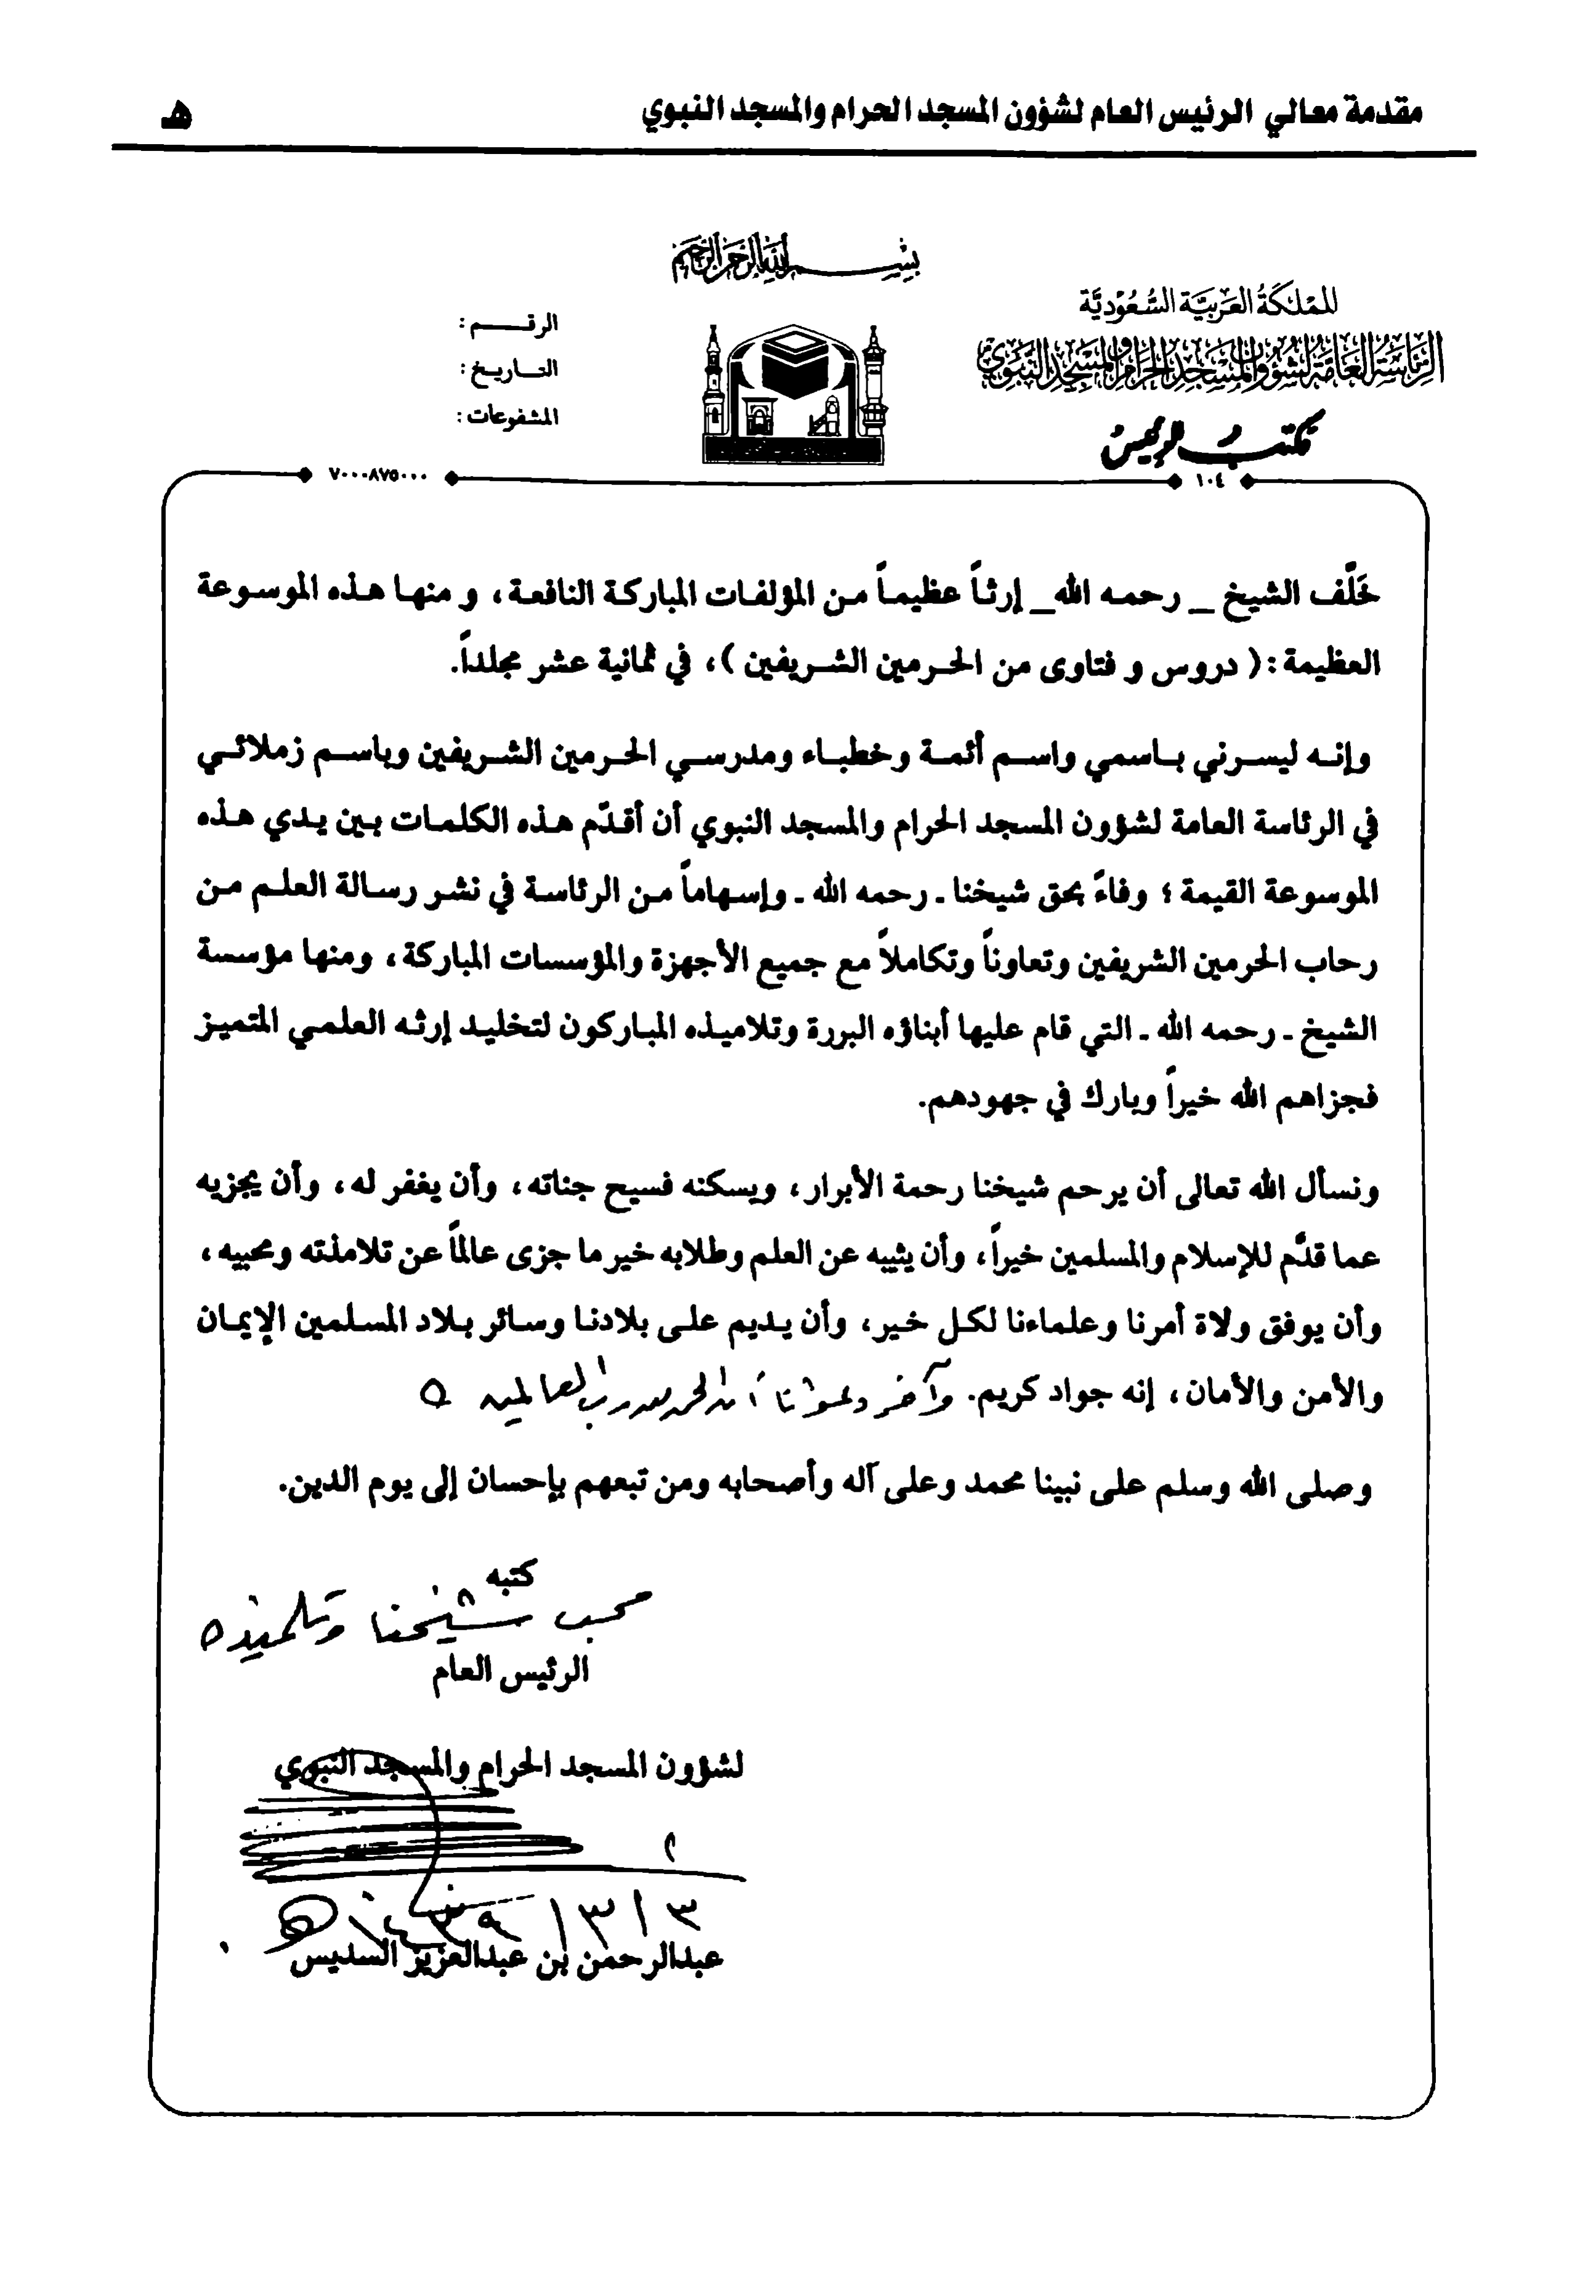 مقدمة معالي الرئيس العام لشؤون المسجد الحرام والمسجد النبوي
هـ
بسم الله الرحمن الرحيم
المملكة العربية السعودية
الرئاسة العامة لشؤون المسجد الحرام والمسجد النبوي
مكتب الرئيس
الرقـــم :
التــاريـخ :
المشفوعات :
١٠٤
٧٠٠٠٨٧٥٠٠٠
خَلَّف الشيخ _ رحمه الله_ إرثاً عظيماً من المؤلفات المباركة النافعة، و منها هذه الموسوعة
العظيمة : ( دروس و فتاوى من الحرمين الشريفين )، في ثمانية عشر مجلداً.
وإنه ليسرني باسمي واسم أئمة وخطباء ومدرسي الحرمين الشريفين وباسم زملائي
في الرئاسة العامة لشؤون المسجد الحرام والمسجد النبوي أن أقدّم هذه الكلمات بين يدي هذه
الموسوعة القيمة ؛ وفاءً بحق شيخنا ـ رحمه الله ـ وإسهاماً من الرئاسة في نشر رسالة العلم من
رحاب الحرمين الشريفين وتعاوناً وتكاملاً مع جميع الأجهزة والمؤسسات المباركة، ومنها مؤسسة
الشيخ ـ رحمه الله ـ التي قام عليها أبناؤه البررة وتلاميذه المباركون لتخليد إرثه العلمي المتميز
فجزاهم الله خيراً وبارك في جهودهم.
ونسأل الله تعالى أن يرحم شيخنا رحمة الأبرار، ويسكنه فسيح جناته، وأن يغفر له، وأن يجزيه
عما قدّم للإسلام والمسلمين خيراً، وأن يثيبه عن العلم وطلابه خير ما جزى عالماً عن تلامذته ومحبيه،
وأن يوفق ولاة أمرنا وعلماءنا لكل خير، وأن يديم على بلادنا وسائر بلاد المسلمين الإيمان
والأمن والأمان، إنه جواد كريم. وآخر دعوانا أن الحمد لله رب العالمين
وصلى الله وسلم على نبينا محمد وعلى آله وأصحابه ومن تبعهم بإحسان إلى يوم الدين.
كتبه
محب شيخنا وتلميذه
الرئيس العام
لشؤون المسجد الحرام والمسجد النبوي
٣/٣/١٤٣٩هـ
عبدالرحمن بن عبدالعزيز السديس